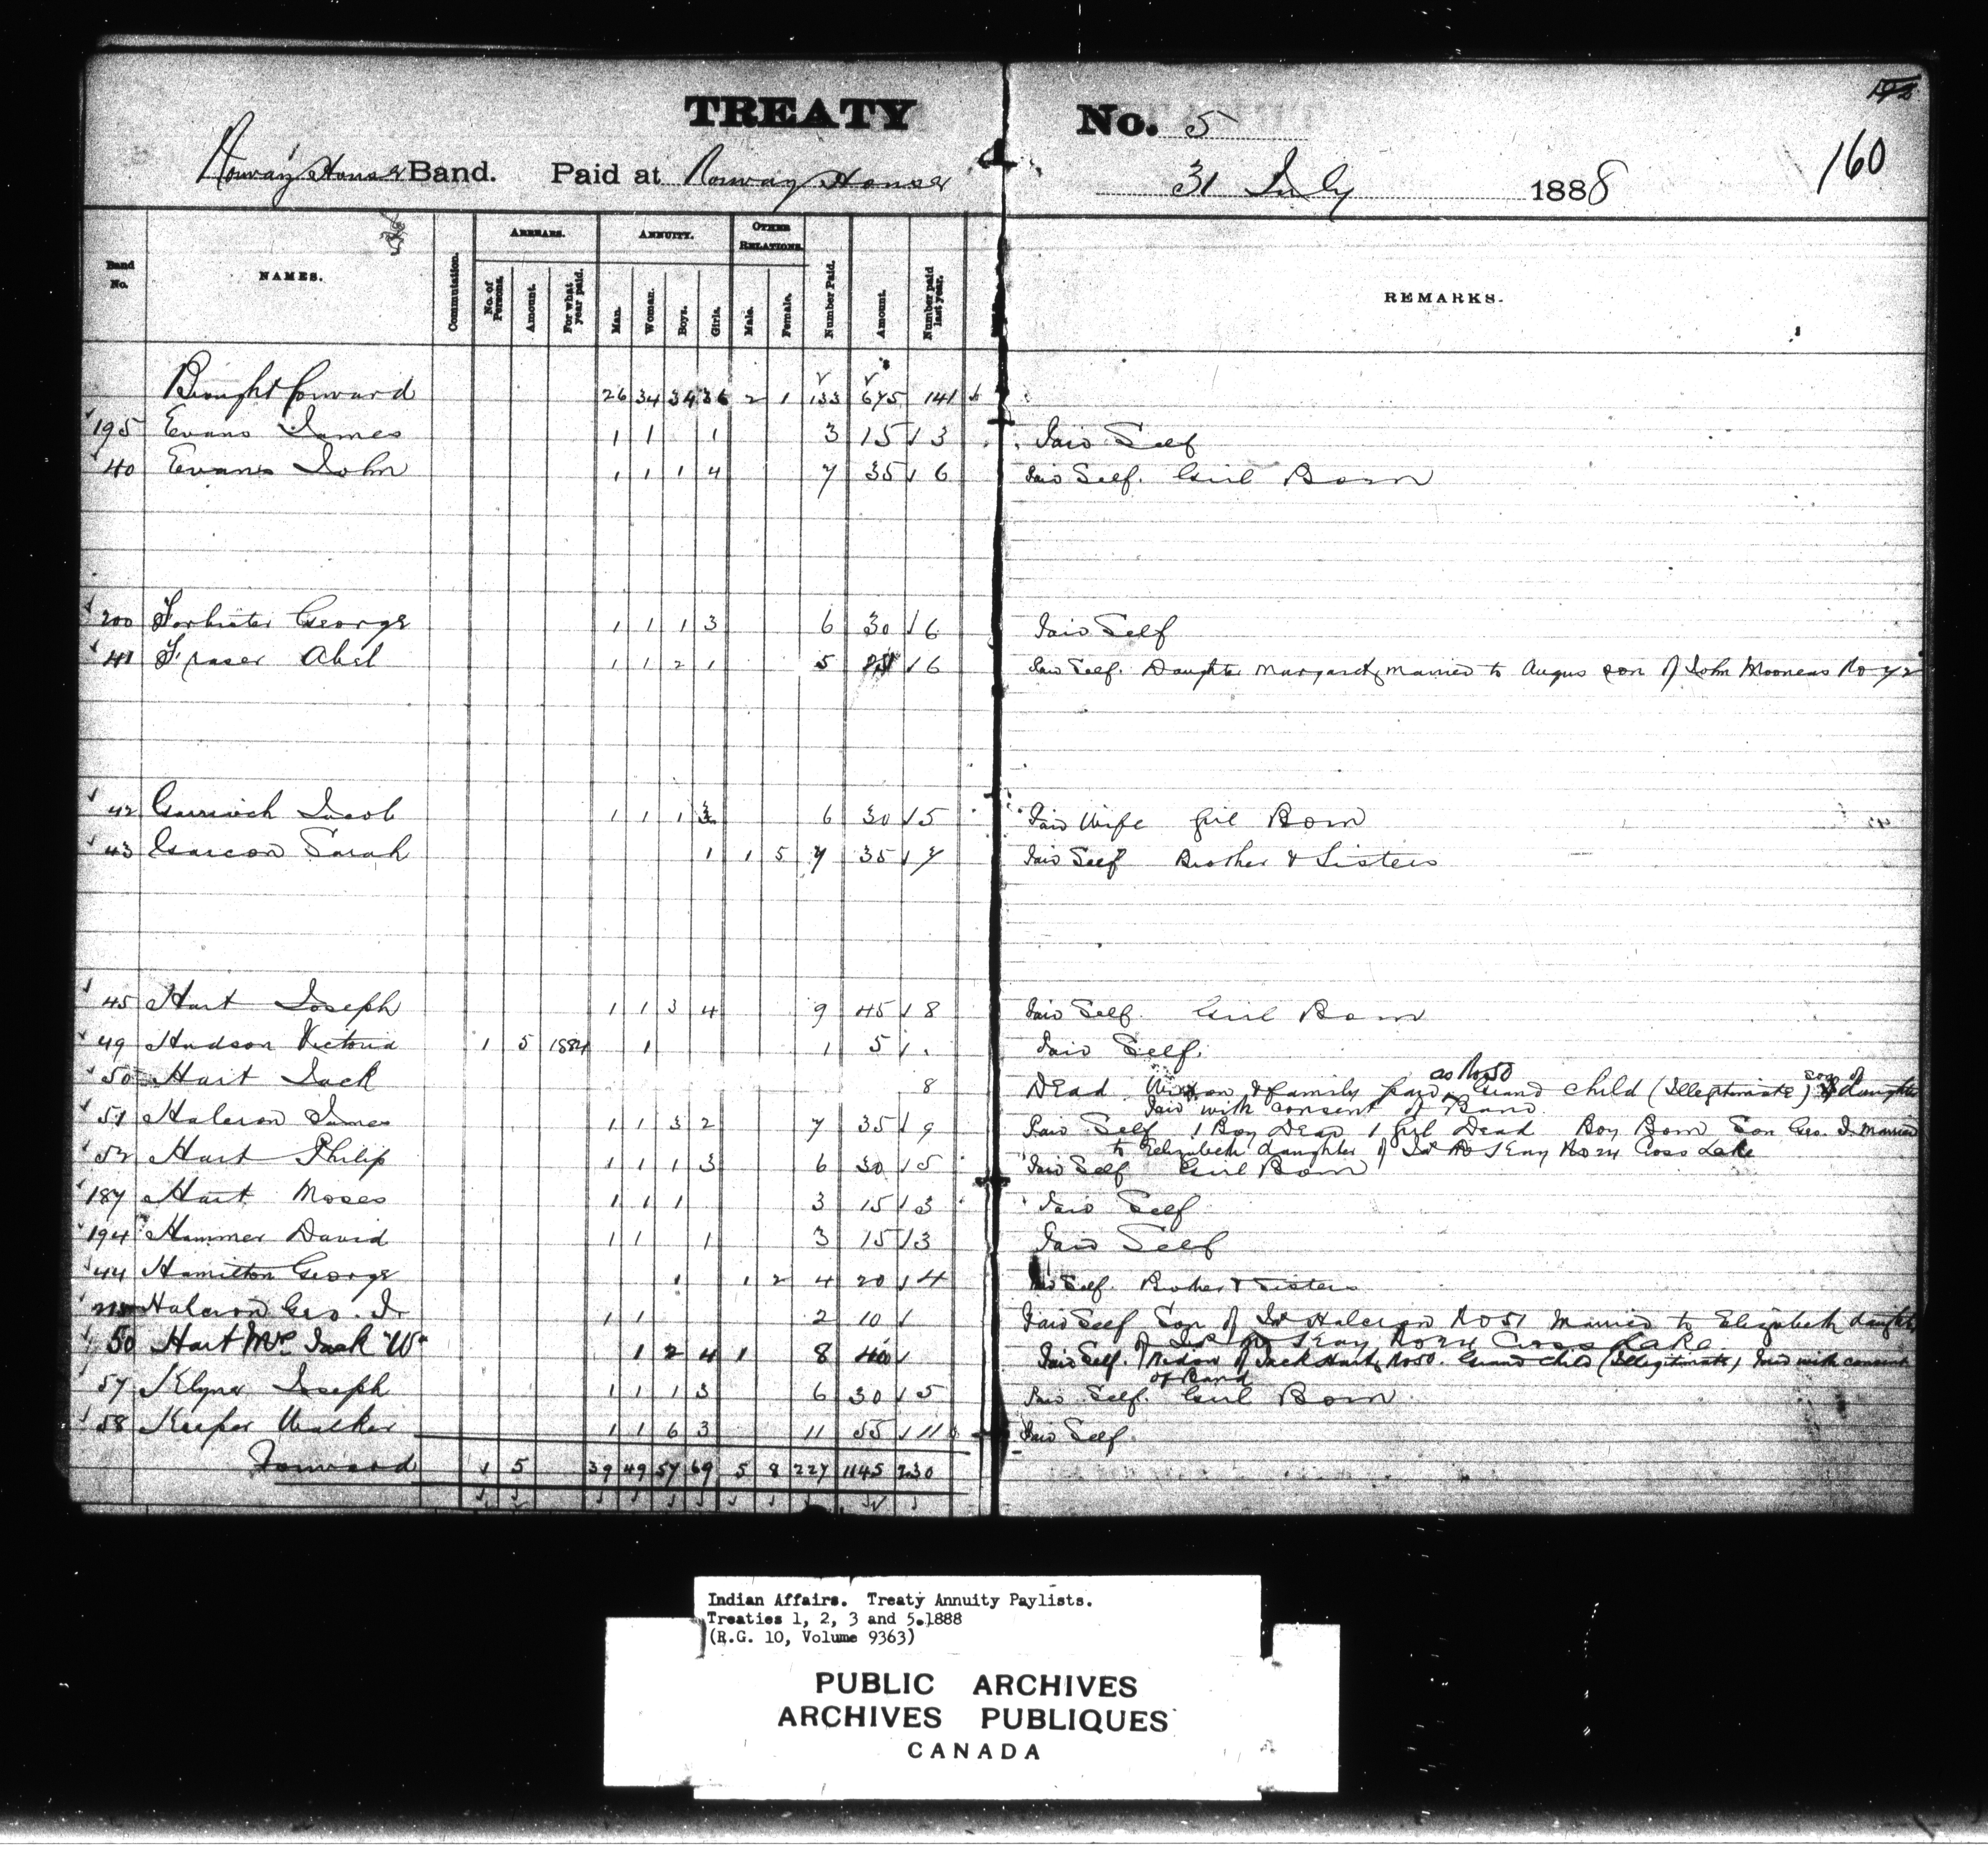 TREATY No. 5
160
Norway House Band. Paid at Norway House 31 July 1888
Band No. NAMES. Commutation. ARREARS. No. of Persons. Amount. For what year paid. ANNUITY. Man. Woman. Boys. Girls. OTHER RELATIONS. Male. Female. Number Paid. Amount. Number paid last year. REMARKS.
Brought forward 26 34 34 36 2 1 133 675 141
195 Evans James 1 1 1 3 15 3 Paid Self
40 Evans John 1 1 1 4 7 35 6 Paid Self. Girl Born
200 George 1 1 1 3 6 30 6 Paid Self
41 Fraser Abel 1 1 2 1 5 6 Paid Self. Daughter Margaret married to Angus son of John Mooneas No 72
42 Jacob 1 1 1 3 6 30 5 Paid Wife Girl Born
43 Garcon Sarah 1 1 5 7 35 7 Paid Self Brother & Sisters
45 Hart Joseph 1 1 3 4 9 45 8 Paid Self. Girl Born
49 Hudson Victoria 1 5 1884 1 1 5 Paid Self.
50 Hart Jack 8 Dead. Widow & family paid as No 50 Grand child (Illegitimate) son of daughter
Paid with consent of Band
51 Halcron James 1 1 3 2 7 35 9 Paid Self 1 Boy Dead 1 Girl Dead Boy Born Son Geo. J. Married
to Elizabeth daughter of No 24 Cross Lake
52 Hart Philip 1 1 1 3 6 30 5 Paid Self Girl Born
187 Hart Moses 1 1 1 3 15 3 Paid Self
194 Hammer David 1 1 1 3 15 3 Paid Self
44 Hamilton George 1 1 2 4 20 4 Paid Self. Brother & Sisters
Halcron Geo. J. 1 1 2 10 Paid Self Son of Jas Halcron No 51 Married to Elizabeth daughter
of No 24 Cross Lake
50 Hart Mrs Jack "W" 1 2 4 1 8 40 Paid Self. Widow of Jack Hart, No 50. Grand child (Illegitimate) Paid with consent
of Band
57 Klyner Joseph 1 1 1 3 6 30 5 Paid Self. Girl Born
58 Keeper Walker 1 1 6 3 11 55 11 Paid Self.
Forward 1 5 39 49 57 69 5 8 227 1145 230
Indian Affairs. Treaty Annuity Paylists.
Treaties 1, 2, 3 and 5.1888
(R.G. 10, Volume 9363)
PUBLIC ARCHIVES
ARCHIVES PUBLIQUES
CANADA